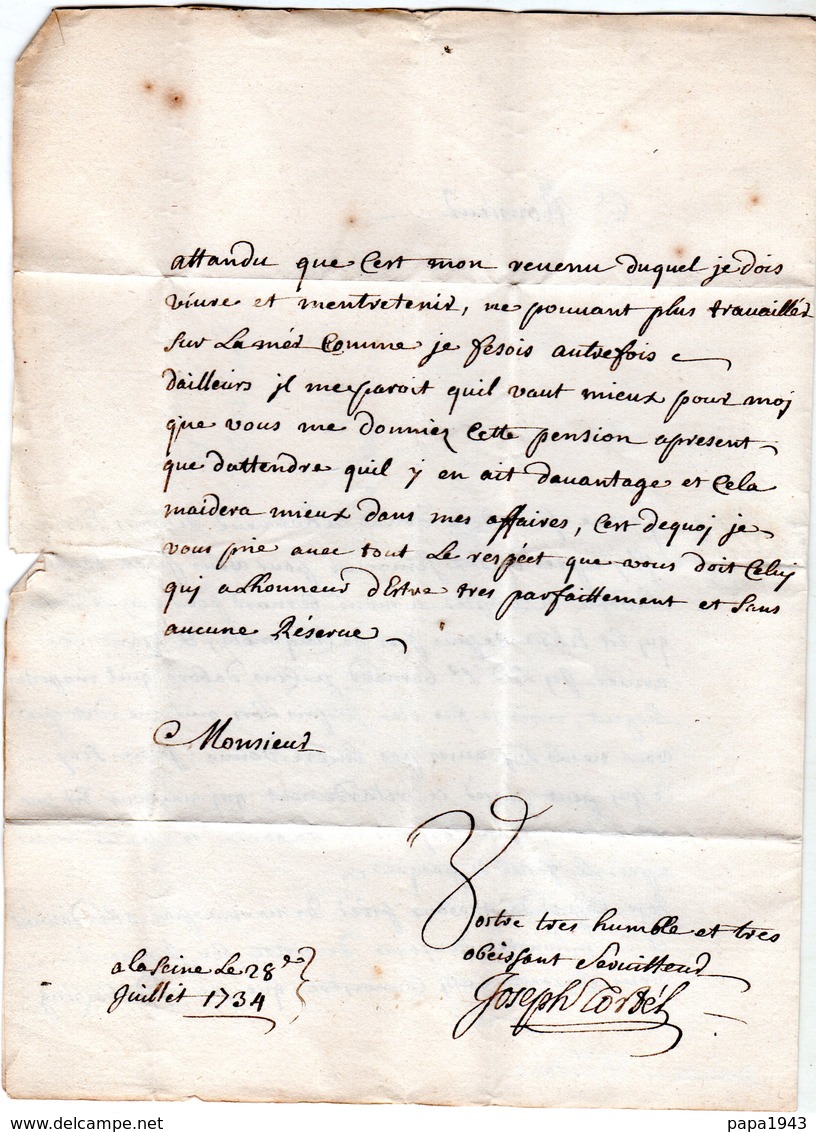 attandu que Cest mon reuenu duquel je dois
viure et mentretenir, ne pouuant plus trauaillér
Sur La mér Comme je fesois autrefois
dailleurs jl me paroit quil vaut mieux pour moj
que vous me donniez Cette pension apresent
que dattendre quil y en ait dauantage et Cela
maidera mieux dans mes affaires, Cest dequoj je
vous prie auec tout Le respéct que vous doit Celuj
quj a Lhonneur dEstre tres parfaittement et Sans
aucune Réserue
Monsieur
Vostre tres humble et tres
obeissant Seruitteur
Joseph
a la Seine Le 28e
Juillét 1734
www.delcampe.net
papa1943